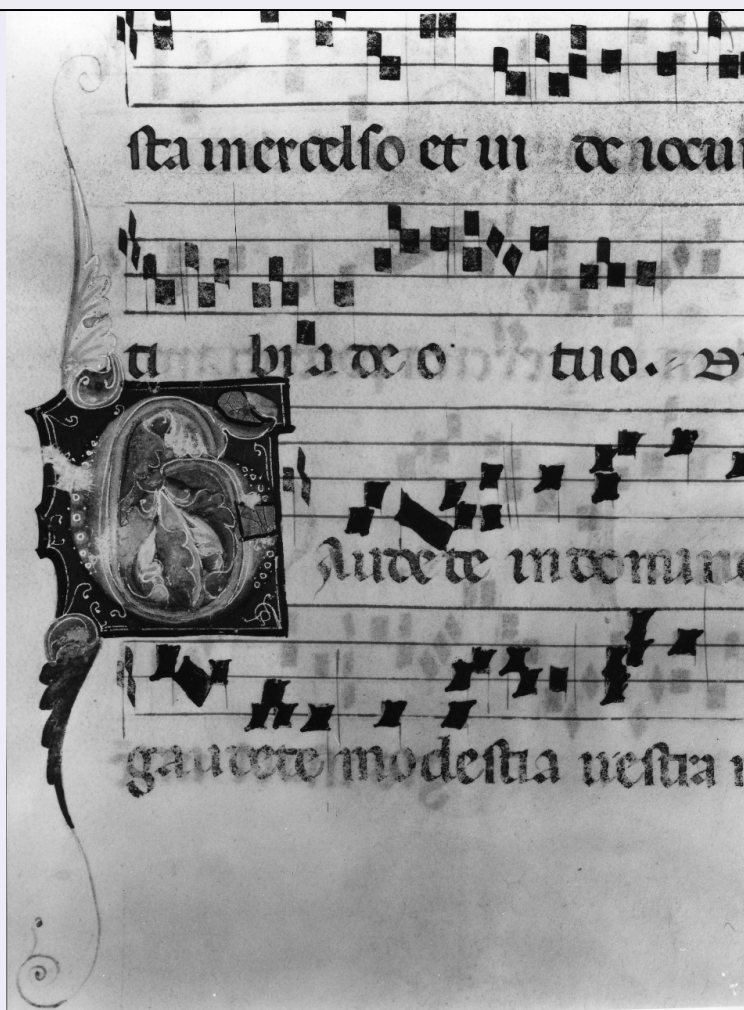 sta in excelso et vi de iocun
ti bi a deo tuo. 
GAudete in domino
gaudete modestia vestra